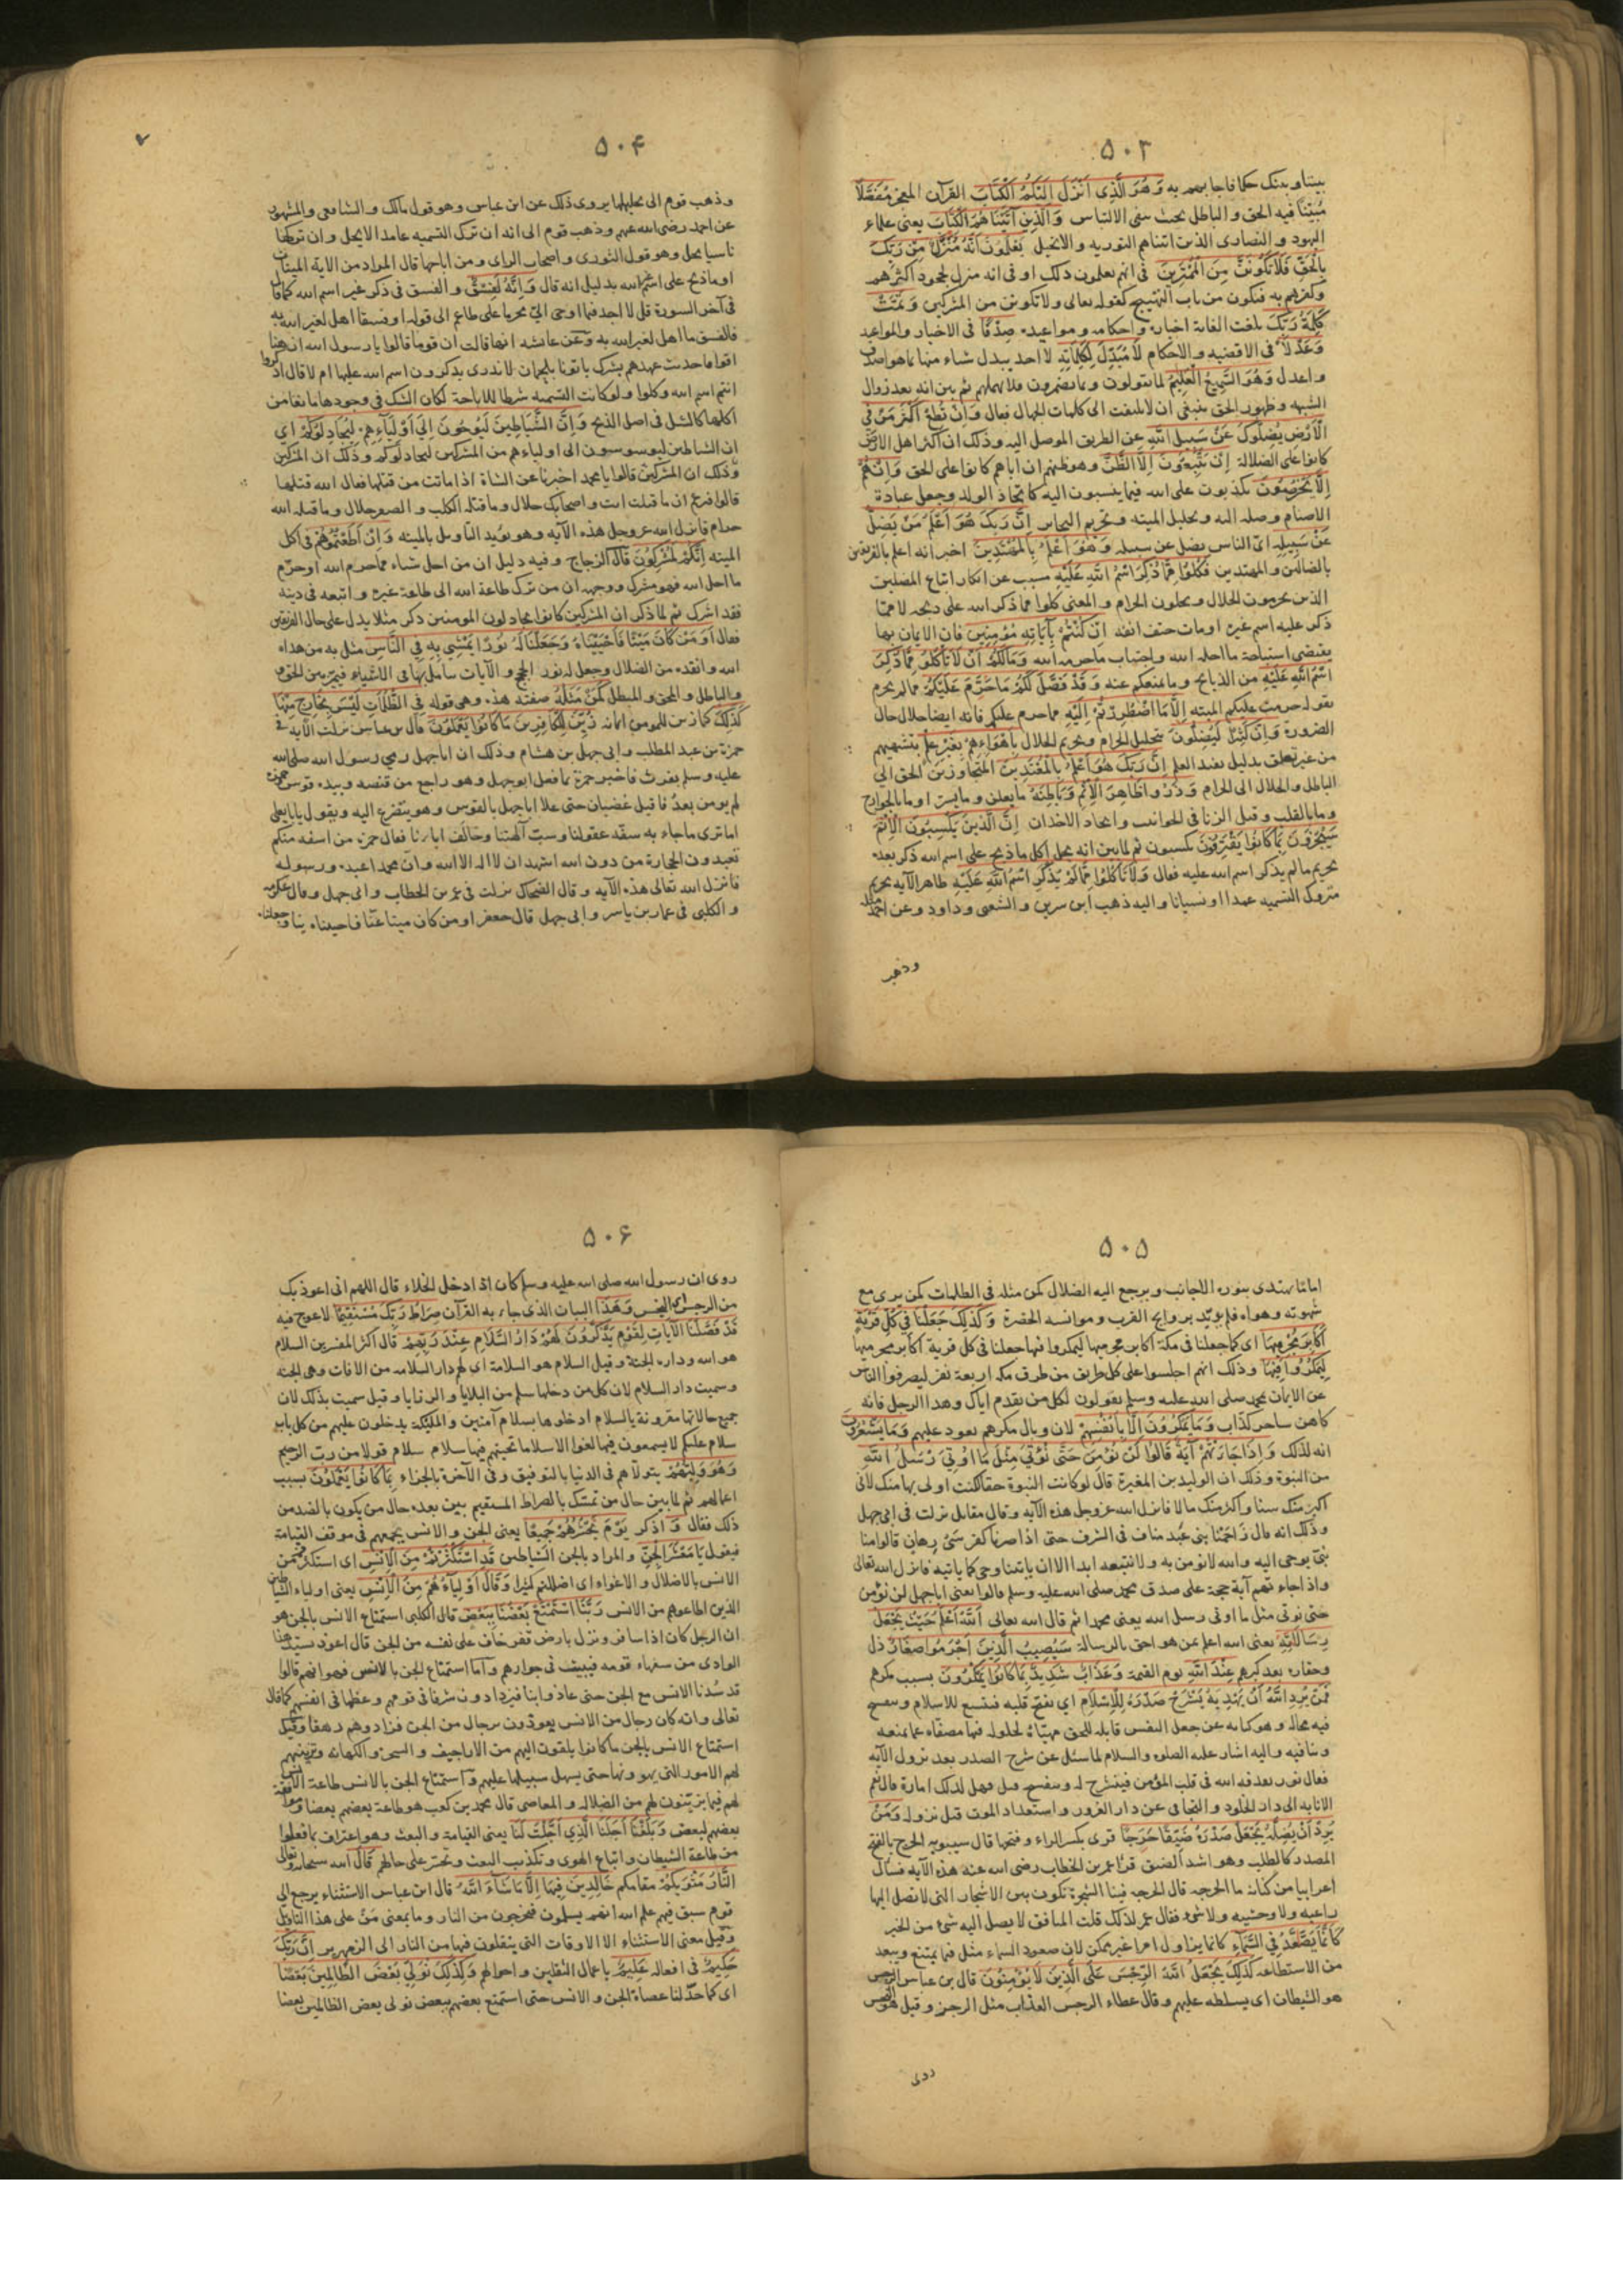 ٥٠٣
بيننا وبينك حكما فاجابهم به وَهُوَ الَّذِى اَنْزَلَ اِلَيْكُمُ الْكِتَابَ القرآن المعجز مُفَصَّلاً
مُبيّنا فيه الحق والباطل بحيث ينفى الالتباس وَالَّذِينَ آتَيْنَاهُمُ الْكِتَابَ يعنى علماء
اليهود والنصارى الذين اتيناهم التوريه والانجيل يَعْلَمُونَ اَنَّهُ مُنَزَّلٌ مِنْ رَبِّكَ
بِالْحَقِّ فَلَا تَكُونَنَّ مِنَ الْمُمْتَرِينَ فى انهم يعلمون ذلك او فى انه منزل بجحود اكثرهم
وكفرهم به فيكون من باب التهييج كقوله تعالى ولا تكونن من المشركين وَتَمَّتْ
كَلِمَةُ رَبِّكَ بلغت الغاية اخباره واحكامه ومواعيده صِدْقًا فى الاخبار والمواعيد
وَعَدْلاً فى الاقضيه والاحكام لَا مُبَدِّلَ لِكَلِمَاتِهِ لا احد يبدل شاء منها بما هو اصدق
واعدل وَهُوَ السَّمِيعُ الْعَلِيمُ لما يقولون وبما يضمرون فلا يهملهم ثم بين انه بعد زوال
الشبهه وظهور الحق ينبغى ان لا يلتفت الى كلمات الجهال فقال وَاِنْ تُطِعْ اَكْثَرَ مَنْ فِى
الْاَرْضِ يُضِلُّوكَ عَنْ سَبِيلِ اللَّهِ عن الطريق الموصل اليه وذلك ان اكثر اهل الارض
كانوا على الضلالة اِنْ يَتَّبِعُونَ اِلَّا الظَّنَّ وهو ظنهم ان اباءهم كانوا على الحق وَاِنْ هُمْ
اِلَّا يَخْرُصُونَ يكذبون على الله فيما ينسبون اليه كاتخاذ الولد وجعل عبادة
الاصنام وصله اليه وتحليل الميته وتحريم البحاير اِنَّ رَبَّكَ هُوَ اَعْلَمُ مَنْ يَضِلُّ
عَنْ سَبِيلِهِ اىّ الناس يضل عن سبيله وَهُوَ اَعْلَمُ بِالْمُهْتَدِينَ اخبر انه اعلم بالفريقين
بالضالين والمهتدين فَكُلُوا مِمَّا ذُكِرَ اسْمُ اللَّهِ عَلَيْهِ مسبب عن انكار اتباع المضلين
الذين يحرمون الحلال ويحلون الحرام والمعنى كلوا مما ذكر الله على ذبحه لا مما
ذكر عليه اسم غيره او مات حتف انفه اِنْ كُنْتُمْ بِآيَاتِهِ مُؤْمِنِينَ فان الايمان بها
يقتضى استباحة ما احله الله واجتناب ما حرمه الله وَمَا لَكُمْ اَنْ لَا تَأْكُلُوا مِمَّا ذُكِرَ
اسْمُ اللَّهِ عَلَيْهِ من الذبايح وما يمنعكم عنه وَقَدْ فَصَّلَ لَكُمْ مَا حَرَّمَ عَلَيْكُمْ مما لم يحرم
بقوله حرمت عليكم الميته اِلَّا مَا اضْطُرِرْتُمْ اِلَيْهِ مما حرم عليكم فانه ايضا حلال حال
الضرورة وَاِنَّ كَثِيرًا لَيُضِلُّونَ بتحليل الحرام وتحريم الحلال بِاَهْوَاءِهِمْ بِغَيْرِ عِلْمٍ بتشهيهم
من غير تعلق بدليل يفيد العلم اِنَّ رَبَّكَ هُوَ اَعْلَمُ بِالْمُعْتَدِينَ المتجاوزين الحق الى
الباطل والحلال الى الحرام وَذَرُوا ظَاهِرَ الْاِثْمِ وَبَاطِنَهُ ما يعلن وما يسر او ما بالجوارح
وما بالقلب وقيل الزنا فى الحوانيت واتخاذ الاخدان اِنَّ الَّذِينَ يَكْسِبُونَ الْاِثْمَ
سَيُجْزَوْنَ بِمَا كَانُوا يَقْتَرِفُونَ يكسبون ثم لما بين انه يحل اكل ما ذبح على اسم الله ذكر بعده
تحريم ما لم يذكر اسم الله عليه فقال وَلَا تَأْكُلُوا مِمَّا لَمْ يُذْكَرِ اسْمُ اللَّهِ عَلَيْهِ ظاهر الآيه تحريم
متروك التسميه عمدا او نسيانا واليه ذهب ابن سرين والشعبى وداود وعن احمد مثله
وذهب
٥٠۴
وذهب قوم الى تحليلها يروى ذلك عن ابن عباس وهو قول مالك والشافعى والمشهور
عن احمد رضى الله عنهم وذهب قوم الى انه ان ترك التسميه عامدا لا يحل وان تركها
ناسيا يحل وهو قول الثورى واصحاب الراى ومن اباحها قال المراد من الاية الميتات
او ما ذبح على اسم غير الله بدليل انه قال وَاِنَّهُ لَفِسْقٌ والفسق فى ذكر غير اسم الله كما قال
فى آخر السورة قل لا اجد فيما اوحى الىّ محرما على طاعم الى قوله او فسقا اهل لغير الله به
فالفسق ما اهل لغير الله به وعن عائشه انها قالت ان قوما قالوا يا رسول الله ان هنا
اقواما حديث عهدهم بشرك ياتونا بلحمان لا ندرى يذكرون اسم الله عليها ام لا قال اذكروا
انتم اسم الله وكلوا ولو كانت التسميه شرطا للاباحة لكان الشك فى وجودها مانعا من
اكلها كالشك فى اصل الذبح وَاِنَّ الشَّيَاطِينَ لَيُوحُونَ اِلَى اَوْلِيَآءِهِمْ لِيُجَادِلُوكُمْ اى
ان الشياطين ليوسوسون الى اولياءهم من المشركين ليجادلوكم وذلك ان المشركين
وذلك ان المشركين قالوا يا محمد اخبرنا عن الشاة اذا ماتت من قتلها فقال الله قتلها
قالوا فتزعم ان ما قتلت انت واصحابك حلال وما قتله الكلب والصقر حلال وما قتله الله
حرام فانزل الله عز وجل هذه الآيه وهو يؤيد التاويل بالميته وَاِنْ اَطَعْتُمُوهُمْ فى اكل
الميته اِنَّكُمْ لَمُشْرِكُونَ قال الزجاج وفيه دليل ان من احل شاء مما حرم الله او حرّم
ما احل الله فهو مشرك ووجهه ان من ترك طاعة الله الى طاعة غيره واتبعه فى دينه
فقد اشرك ثم لما ذكر ان المشركين كانوا يجادلون المومنين ذكر مثلا يدل على حال الفريقين
فقال اَوَمَنْ كَانَ مَيْتًا فَاَحْيَيْنَاهُ وَجَعَلْنَا لَهُ نُورًا يَمْشِى بِهِ فِى النَّاسِ مثل به من هداه
الله وانقذه من الضلال وجعل له نور الحجج والآيات يتامل بها فى الاشياء فيميز بين الحق و
والباطل والمحق والمبطل كَمَنْ مَثَلُهُ صفته هذه وهى قوله فِى الظُّلُمَاتِ لَيْسَ بِخَارِجٍ مِنْهَا
كَذَلِكَ كما زين للمومن ايمانه زُيِّنَ لِلْكَافِرِينَ مَا كَانُوا يَعْمَلُونَ قال بن عباس نزلت الآيه فى
حمزة بن عبد المطلب وابى جهل بن هشام وذلك ان اباجهل رمى رسول الله صلى الله
عليه وسلم بفرث فاخبر حمزة بما فعل ابوجهل وهو راجع من قنصه وبيده قوس حمزة
لم يومن بعدُ فاقبل غضبان حتى علا اباجهل بالقوس وهو يتضرع اليه ويقول يا بايعلى
اما ترى ما جاء به سفّه عقولنا وسبّ آلهتنا وخالف اباءنا فقال حمزه من اسفه منكم
تعبدون الحجارة من دون الله اشهد ان لا اله الا الله وان محمدا عبده ورسوله
فانزل الله تعالى هذه الآيه وقال الضحاك نزلت فى عمر بن الخطاب وابى جهل وقال عكرمه
والكلبى فى عمار بن ياسر وابى جهل قال جعفر اومن كان ميتا عنّا فاحييناه بنا وجعلناه
٥٠٥
اماما يهتدى بنوره الاجانب ويرجع اليه الضلال كمن مثله فى الظلمات كمن يرى مع
شهوته وهواه فلم يؤيّد بروايح القرب وموانسه الحضرة وَكَذَلِكَ جَعَلْنَا فِى كُلِّ قَرْيَةٍ
اَكَابِرَ مُجْرِمِيهَا اى كما جعلنا فى مكة اكابر مجرميها ليمكروا فيها جعلنا فى كل قرية اكابر مجرميها
لِيَمْكُرُوا فِيهَا وذلك انهم اجلسوا على كل طريق من طرق مكه اربعة نفر ليصرفوا الناس
عن الايمان بمحمد صلى الله عليه وسلم يقولون لكل من يقدم اياك وهذا الرجل فانه
كاهن ساحر كذّاب وَمَا يَمْكُرُونَ اِلَّا بِاَنْفُسِهِمْ لان وبال مكرهم يعود عليهم وَمَا يَشْعُرُونَ
انه لذلك وَاِذَا جَاءَتْهُمْ آيَةٌ قَالُوا لَنْ نُؤْمِنَ حَتَّى نُؤْتَى مِثْلَ مَا اُوتِىَ رُسُلُ اللَّهِ
من النبوة وذلك ان الوليد بن المغيرة قال لو كانت النبوة حقا لكنت اولى بها منك لانى
اكبر منك سنا واكثر منك مالا فانزل الله عز وجل هذه الآيه وقال مقاتل نزلت فى ابى جهل
وذلك انه قال زاحمنا بنى عبد مناف فى الشرف حتى اذا صرنا كفرسى رهان قالوا منا
نبىّ يوحى اليه والله لا نومن به ولا نتبعه ابدا الا ان ياتينا وحى كما ياتيه فانزل الله تعالى
واذا جاءتهم آية حجة على صدق محمد صلى الله عليه وسلم قالوا يعنى اباجهل لن نؤمن
حتى نوتى مثل ما اوتى رسل الله يعنى محمدا ثم قال الله تعالى اَللَّهُ اَعْلَمُ حَيْثُ يَجْعَلُ
رِسَالَاتِهِ يعنى الله اعلم بمن هو احق بالرسالة سَيُصِيبُ الَّذِينَ اَجْرَمُوا صَغَارٌ ذل
وحقاره بعد كبرهم عِنْدَ اللَّهِ يوم القيمه وَعَذَابٌ شَدِيدٌ بِمَا كَانُوا يَمْكُرُونَ بسبب مكرهم
فَمَنْ يُرِدِ اللَّهُ اَنْ يَهْدِيَهُ يَشْرَحْ صَدْرَهُ لِلْاِسْلَامِ اى يفتح قلبه فيتسع للاسلام ويفسح
فيه مجاله وهو كنايه عن جعل النفس قابله للحق مهيّاة لحلوله فيها مصفاه عما يمنعه
وينافيه واليه اشار عليه الصلوه والسلام لما سئل عن شرح الصدر بعد نزول الآيه
فقال نور يقذفه الله فى قلب المؤمن فينشرح له وينفسح قيل فهل لذلك امارة قال نعم
الانابه الى دار الخلود والتجافى عن دار الغرور واستعداد الموت قبل نزوله وَمَنْ
يُرِدْ اَنْ يُضِلَّهُ يَجْعَلْ صَدْرَهُ ضَيِّقًا حَرَجًا قرى بكسر الراء وفتحها قال سيبويه الحرج بالفتح
المصدر كالطلب وهو اشد الضيق قرا عمر بن الخطاب رضى الله عنه هذه الآيه فسال
اعرابيا من كنانه ما الحرجه قال الحرجه فينا الشجرة تكون بين الاشجار التى لا تصل اليها
راعيه ولا وحشيه ولا شئ فقال عمر لذلك قلب المنافق لا يصل اليه شئ من الخير
كَاَنَّمَا يَصَّعَّدُ فِى السَّمَاءِ كانما يزاول امرا غير ممكن لان صعود السماء مثل فيما يمتنع ويبعد
من الاستطاعه كَذَلِكَ يَجْعَلُ اللَّهُ الرِّجْسَ عَلَى الَّذِينَ لَا يُؤْمِنُونَ قال بن عباس الرجس
هو الشيطان اى يسلطه عليهم وقال عطاء الرجس العذاب مثل الرجز وقيل هو النجس
روى
٥٠۶
روى ان رسول الله صلى الله عليه وسلم كان اذا دخل الخلاء قال اللهم انى اعوذ بك
من الرجس النجس وَهَذَا البيان الذى جاء به القرآن صِرَاطُ رَبِّكَ مُسْتَقِيمًا لا عوج فيه
قَدْ فَصَّلْنَا الْآيَاتِ لِقَوْمٍ يَذَّكَّرُونَ لَهُمْ دَارُ السَّلَامِ عِنْدَ رَبِّهِمْ قال اكثر المفسرين السلام
هو الله وداره الجنة وقيل السلام هو السلامة اى لهم دار السلامه من الافات وهى الجنه
وسميت دار السلام لان كل من دخلها سلم من البلايا والرزايا وقيل سميت بذلك لان
جميع حالاتها مقرونة بالسلام ادخلوها بسلام آمنين والمليكة يدخلون عليهم من كل باب
سلام عليكم لا يسمعون فيها لغوا الا سلاما تحيتهم فيها سلام سلام قولا من رب الرحيم
وَهُوَ وَلِيُّهُمْ يتولاهم فى الدنيا بالتوفيق وفى الآخرة بالجزاء بِمَا كَانُوا يَعْمَلُونَ بسبب
اعمالهم ثم لما بين حال من تمسّك بالصراط المستقيم بين بعده حال من يكون بالضد من
ذلك فقال وَ اذكر يَوْمَ يَحْشُرُهُمْ جَمِيعًا يعنى الجن والانس يجمعهم فى موقف القيامة
فيقول يَا مَعْشَرَ الْجِنِّ والمراد بالجن الشياطين قَدِ اسْتَكْثَرْتُمْ مِنَ الْاِنْسِ اى استكثرتم من
الانس بالاضلال والاغواء اى اضللتم كثيرا وَقَالَ اَوْلِيَاءُهُمْ مِنَ الْاِنْسِ يعنى اولياء الشياطين
الذين اطاعوهم من الانس رَبَّنَا اسْتَمْتَعَ بَعْضُنَا بِبَعْضٍ قال الكلبى استمتاع الانس بالجن هو
ان الرجل كان اذا سافر ونزل بارض قفر خاف على نفسه من الجن قال اعوذ بسيد هذا
الوادى من سفهاء قومه فيبيت فى جوارهم واما استمتاع الجن بالانس فهو انهم قالوا
قد سُدْنا الانس مع الجن حتى عاذوا بنا فيزدادون شرفا فى قومهم وعظما فى انفسهم كما قال
تعالى وانه كان رجال من الانس يعوذون برجال من الجن فزادوهم رهقا وقيل
استمتاع الانس بالجن ما كانوا يلقون اليهم من الاراجيف والسحر والكهانه وتزيينهم
لهم الامور التى يهوونها حتى يسهل سبيلها عليهم واستمتاع الجن بالانس طاعة الانس
لهم فيما يزيّنون لهم من الضلاله والمعاصى قال محمد بن كعب هو طاعة بعضهم بعضا وموافقة
بعضهم لبعض وَبَلَغْنَا اَجَلَنَا الَّذِى اَجَّلْتَ لَنَا يعنى القيامة والبعث وهو اعتراف بما فعلوا
من طاعة الشيطان واتباع الهوى وتكذيب البعث وتحسر على حالهم قَالَ الله سبحانه وتعالى
النَّارُ مَثْوَيكُمْ مقامكم خَالِدِينَ فِيهَا اِلَّا مَا شَآءَ اللَّهُ قال ابن عباس الاستثناء يرجع الى
قوم سبق فيهم علم الله انهم يسلمون فيخرجون من النار وما بمعنى مَنْ على هذا التاويل
وقيل معنى الاستثناء الا الاوقات التى ينقلون فيها من النار الى الزمهرير اِنَّ رَبَّكَ
حَكِيمٌ فى افعاله عَلِيمٌ باعمال الثقلين واحوالهم وَكَذَلِكَ نُوَلِّى بَعْضَ الظَّالِمِينَ بَعْضًا
اى كما خذلنا عصاة الجن والانس حتى استمتع بعضهم ببعض نولى بعض الظالمين بعضا